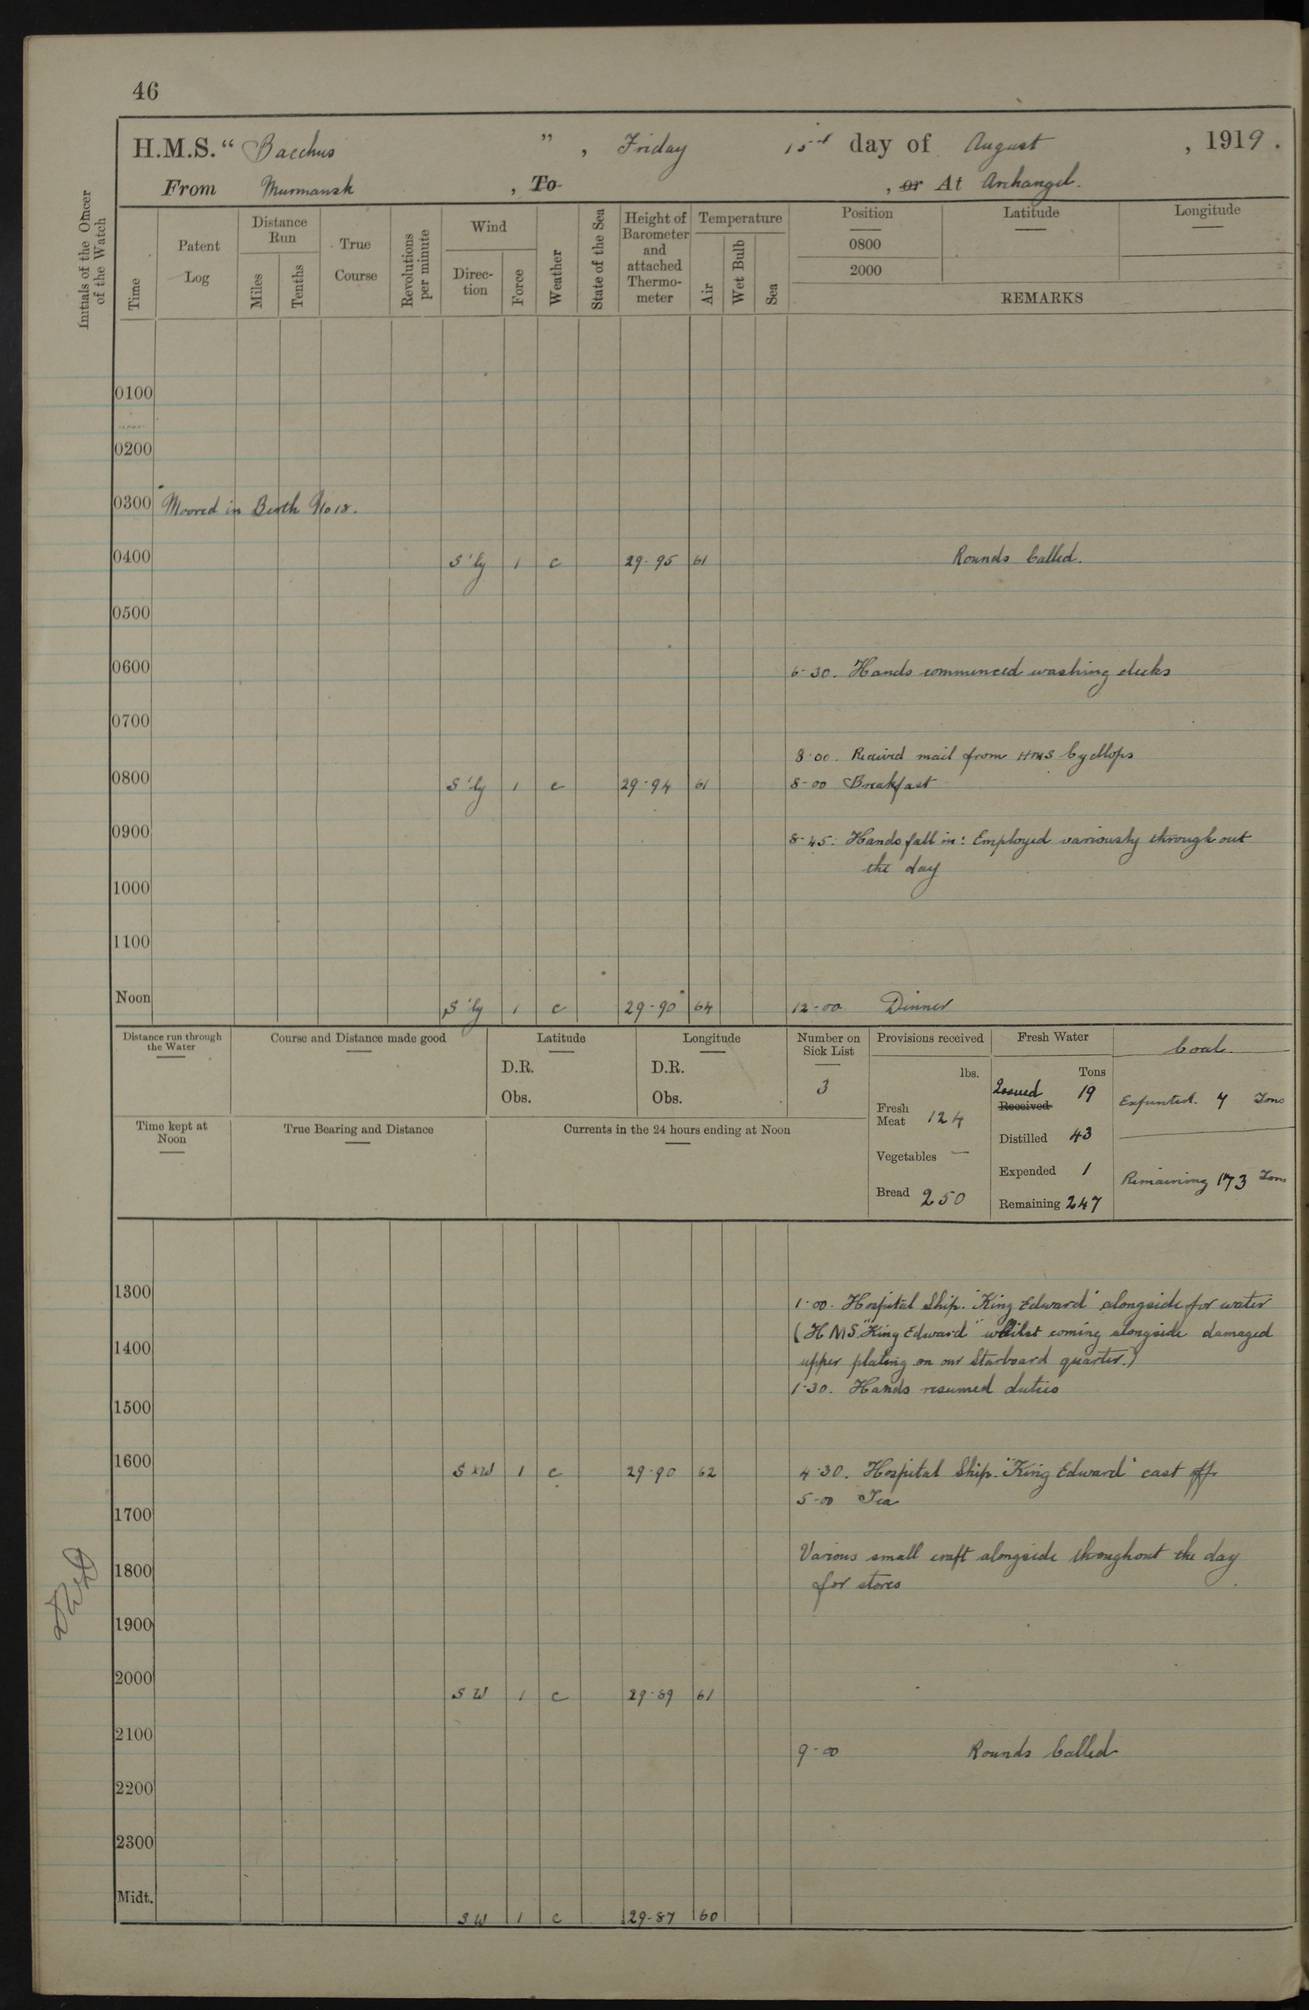 46
H.M.S. “ Bacchus ” , Friday 15th day of August , 1919 .
From Murmansk , To , or At Archangel.
Initials of the Officer of the Watch
Time
Patent Log
Distance Run
Miles
Tenths
True Course
Revolutions per minute
Wind
Direc-tion
Force
Weather
State of the Sea
Height of Barometer and attached Thermo-meter
Temperature
Air
Wet Bulb
Sea
Position
0800
2000
Latitude
Longitude
REMARKS
0100
0200
0300 Moored in Berth No 18.
0400 S'ly 1 c 29-95 61 Rounds Called.
0500
0600 6-30. Hands commenced washing decks
0700
8-00. Received mail from HMS Cycllops
0800 S'ly 1 c 29-94 61 8-00 Breakfast
0900 8-45: Hands fall in: Employed variously through out
the day
1000
1100
Noon S'ly 1 c 29-90 64 12-00 Dinner
Distance run through the Water
Course and Distance made good
Latitude
D.R.
Obs.
Longitude
D.R.
Obs.
Number on Sick List
3
Provisions received
lbs.
Fresh Meat 124
Vegetables —
Bread 250
Fresh Water
Tons
Issued Received 19
Distilled 43
Expended 1
Remaining 247
Coal.
Expended. 7 Tons
Remaining 173 Tons
Time kept at Noon
True Bearing and Distance
Currents in the 24 hours ending at Noon
1300 1-00. Hospital Ship. "King Edward" alongside for water
(H.M.S. "King Edward" whilst coming alongside damaged
1400 upper plating on our Starboard quarter.)
1-30. Hands resumed duties
1500
1600 SxW 1 c 29-90 62 4-30. Hospital Ship. "King Edward" cast off
5-00 Tea
1700
Various small craft alongside throughout the day
1800 for stores
1900
2000 SW 1 c 29-89 61
2100 9-00 Rounds Called
2200
2300
Midt. SW 1 c 29-87 60